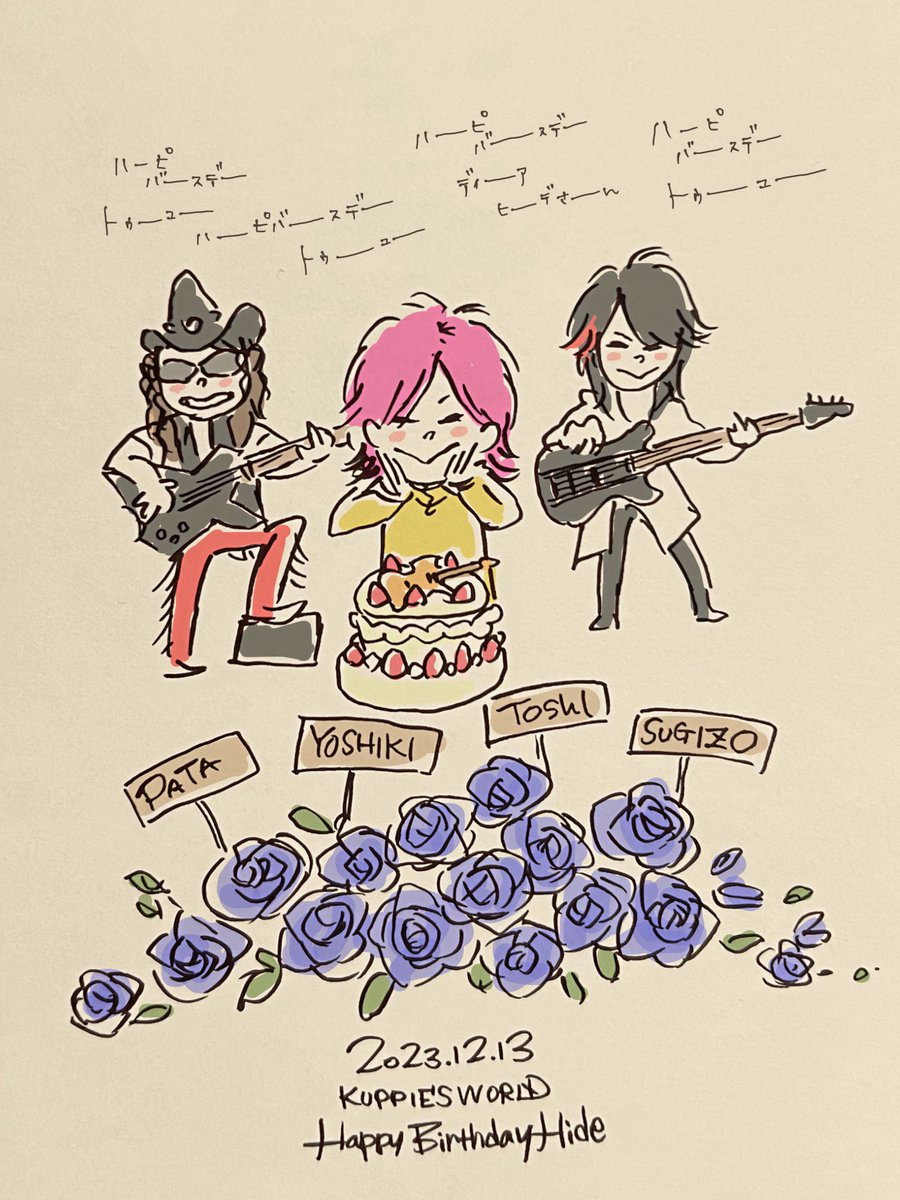 ハーピ
バースデー
トゥーユー
ハーピバースデー
トゥーユー
ハーピ
バースデー
ディーア
ヒーデさーん
ハーピ
バースデー
トゥーユー
PATA
YOSHIKI
TOSHI
SUGIZO
2023.12.13
KUPPIE'S WORLD
Happy Birthday Hide